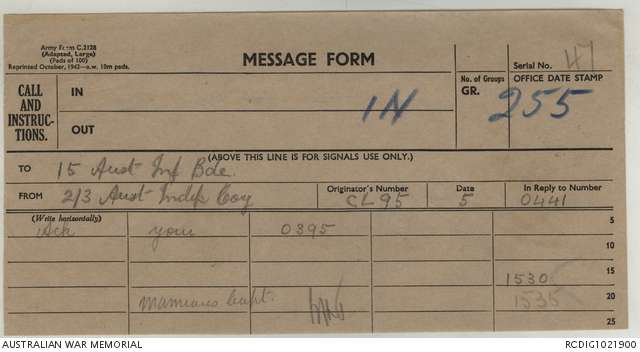 Army Form C.2128
(Adapted, Large)
(Pads of 100)
Reprinted October, 1942—a.w. 10m pads.
MESSAGE FORM
Serial No. 47
CALL AND INSTRUC-TIONS.
IN
IN
No. of Groups
GR.
OFFICE DATE STAMP
255
OUT
(ABOVE THIS LINE IS FOR SIGNALS USE ONLY.)
TO 15 Aust Inf Bde.
FROM 2/3 Aust Indep Coy
Originator's Number
CL95
Date
5
In Reply to Number
0441
(Write horizontally)
Ack your 0395
5
10
15
1530
1535
20
Capt.
25
AUSTRALIAN WAR MEMORIAL
RCDIG1021900